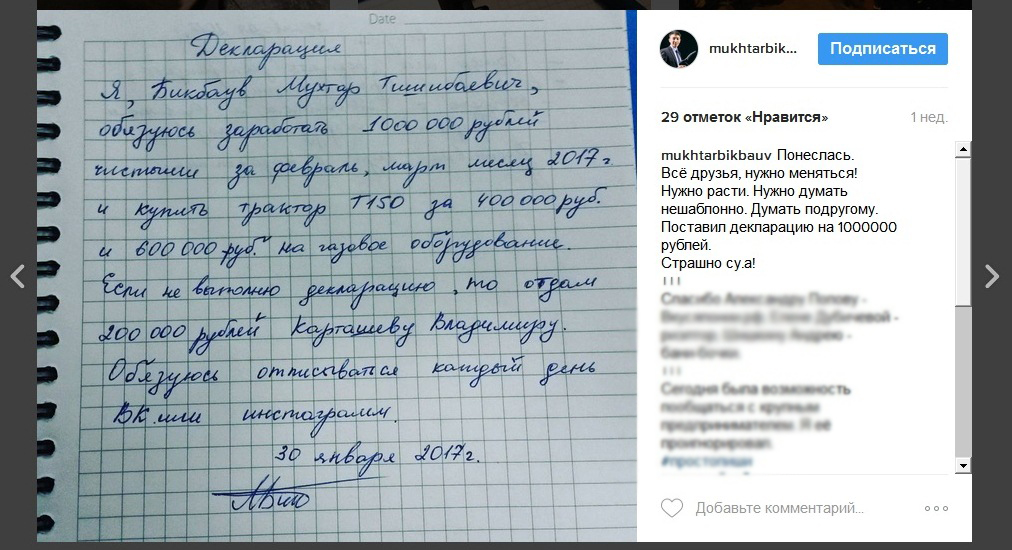 Date
Декларация
Я, Бикбаув Мухтар Тишибаевич,
обязуюсь заработать 1000 000 рублей
чистыми за февраль, март месяц 2017г
и купить трактор Т150 за 400 000 руб.
и 600 000 руб. на газовое оборудование.
Если не выполню декларацию, то отдам
200 000 рублей Карташеву Владимиру.
Обязуюсь отписываться каждый день
ВК или инстаграмм.
30 января 2017г.
mukhtarbik...
Подписаться
29 отметок «Нравится»
1 нед.
mukhtarbikbauv Понеслась.
Всё друзья, нужно меняться!
Нужно расти. Нужно думать
нешаблонно. Думать подругому.
Поставил декларацию на 1000000
рублей.
Страшно су.а!
! ! !
Спасибо Александру Попову -
Сегодня была возможность
пообщаться с крупным
предпринимателем. Я её
проигнорировал.
#простопиши
Добавьте комментарий...